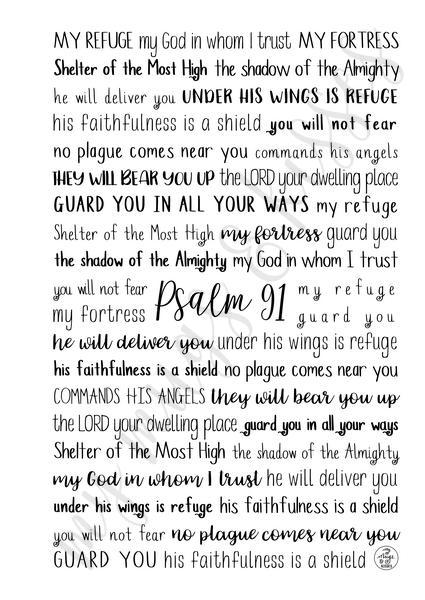 MY REFUGE my God in whom I trust MY FORTRESS
Shelter of the Most High the shadow of the Almighty
he will deliver you UNDER HIS WINGS IS REFUGE
his faithfulness is a shield you will not fear
no plague comes near you commands his angels
THEY WILL BEAR YOU UP the LORD your dwelling place
GUARD YOU IN ALL YOUR WAYS my refuge
Shelter of the Most High my fortress guard you
the shadow of the Almighty my God in whom I trust
you will not fear
my fortress
Psalm 91
my refuge
guard you
he will deliver you under his wings is refuge
his faithfulness is a shield no plague comes near you
COMMANDS HIS ANGELS they will bear you up
the LORD your dwelling place guard you in all your ways
Shelter of the Most High the shadow of the Almighty
my God in whom I trust he will deliver you
under his wings is refuge his faithfulness is a shield
you will not fear no plague comes near you
GUARD YOU his faithfulness is a shield